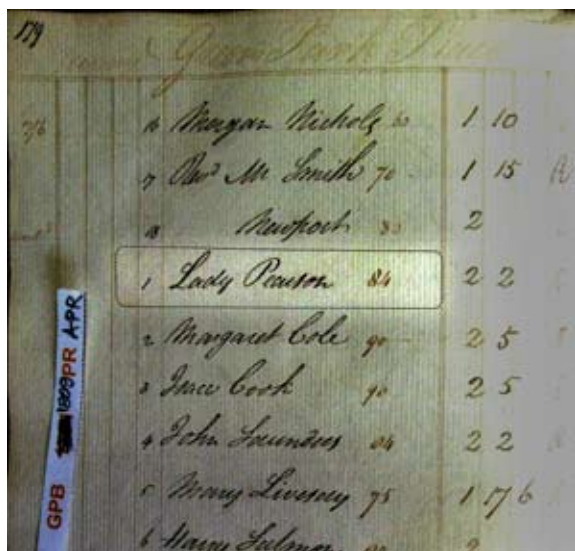 179
Green Park Place
6 Morgan Nichols 60 1 10
7 Revd Mr Smith 70 1 15
8 Newport 80 2
1 Lady Pearson 84 2 2
2 Margaret Cole 90 2 5
3 Isaac Cook 90 2 5
4 John Saunders 84 2 2
5 Mary Livesay 75 1 17 6
6 Harry Salmon
GPB 1809 PR APR